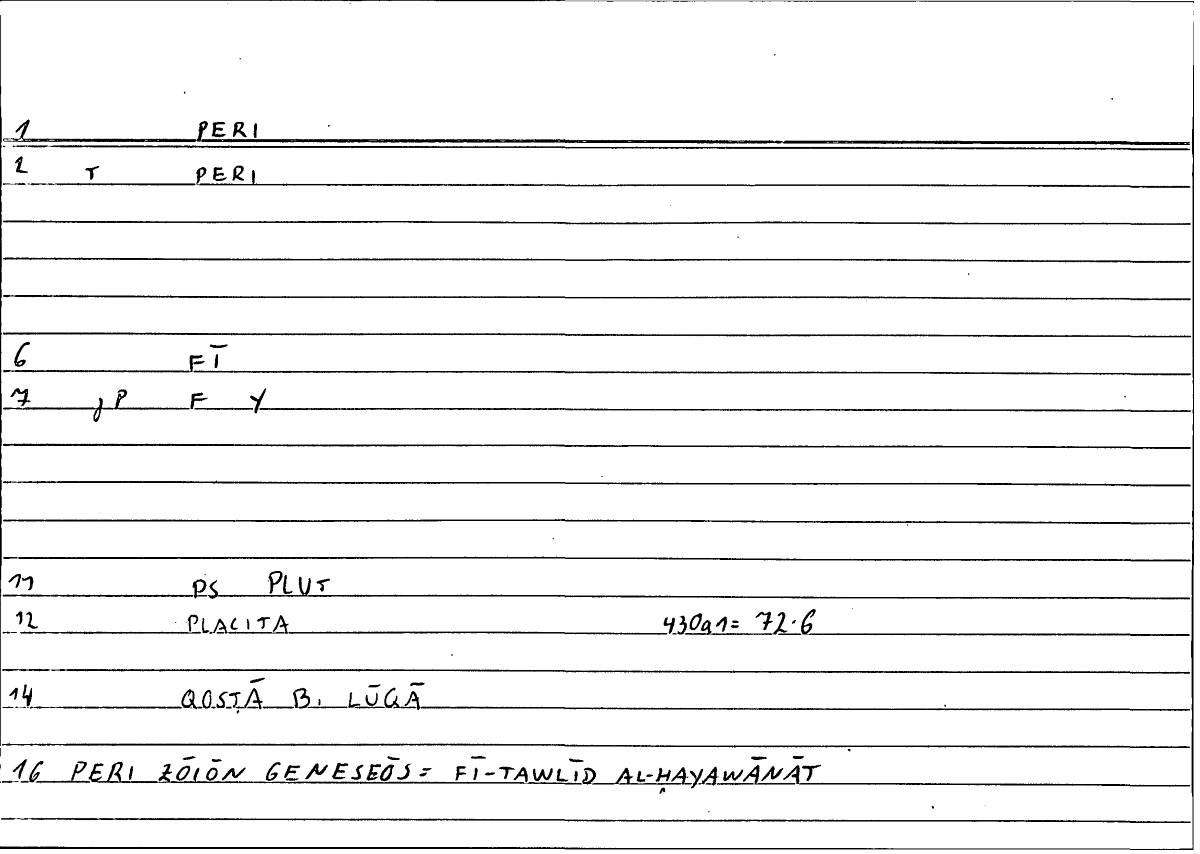 1 PERI
2 T PERI
6 FĪ
7 P F Y
11 PS PLUT
12 PLACITA 430a1= 72.6
14 QOSṬĀ B. LŪQĀ
16 PERI ZŌIŌN GENESEŌS= FĪ-TAWLĪD AL-ḤAYAWĀNĀT